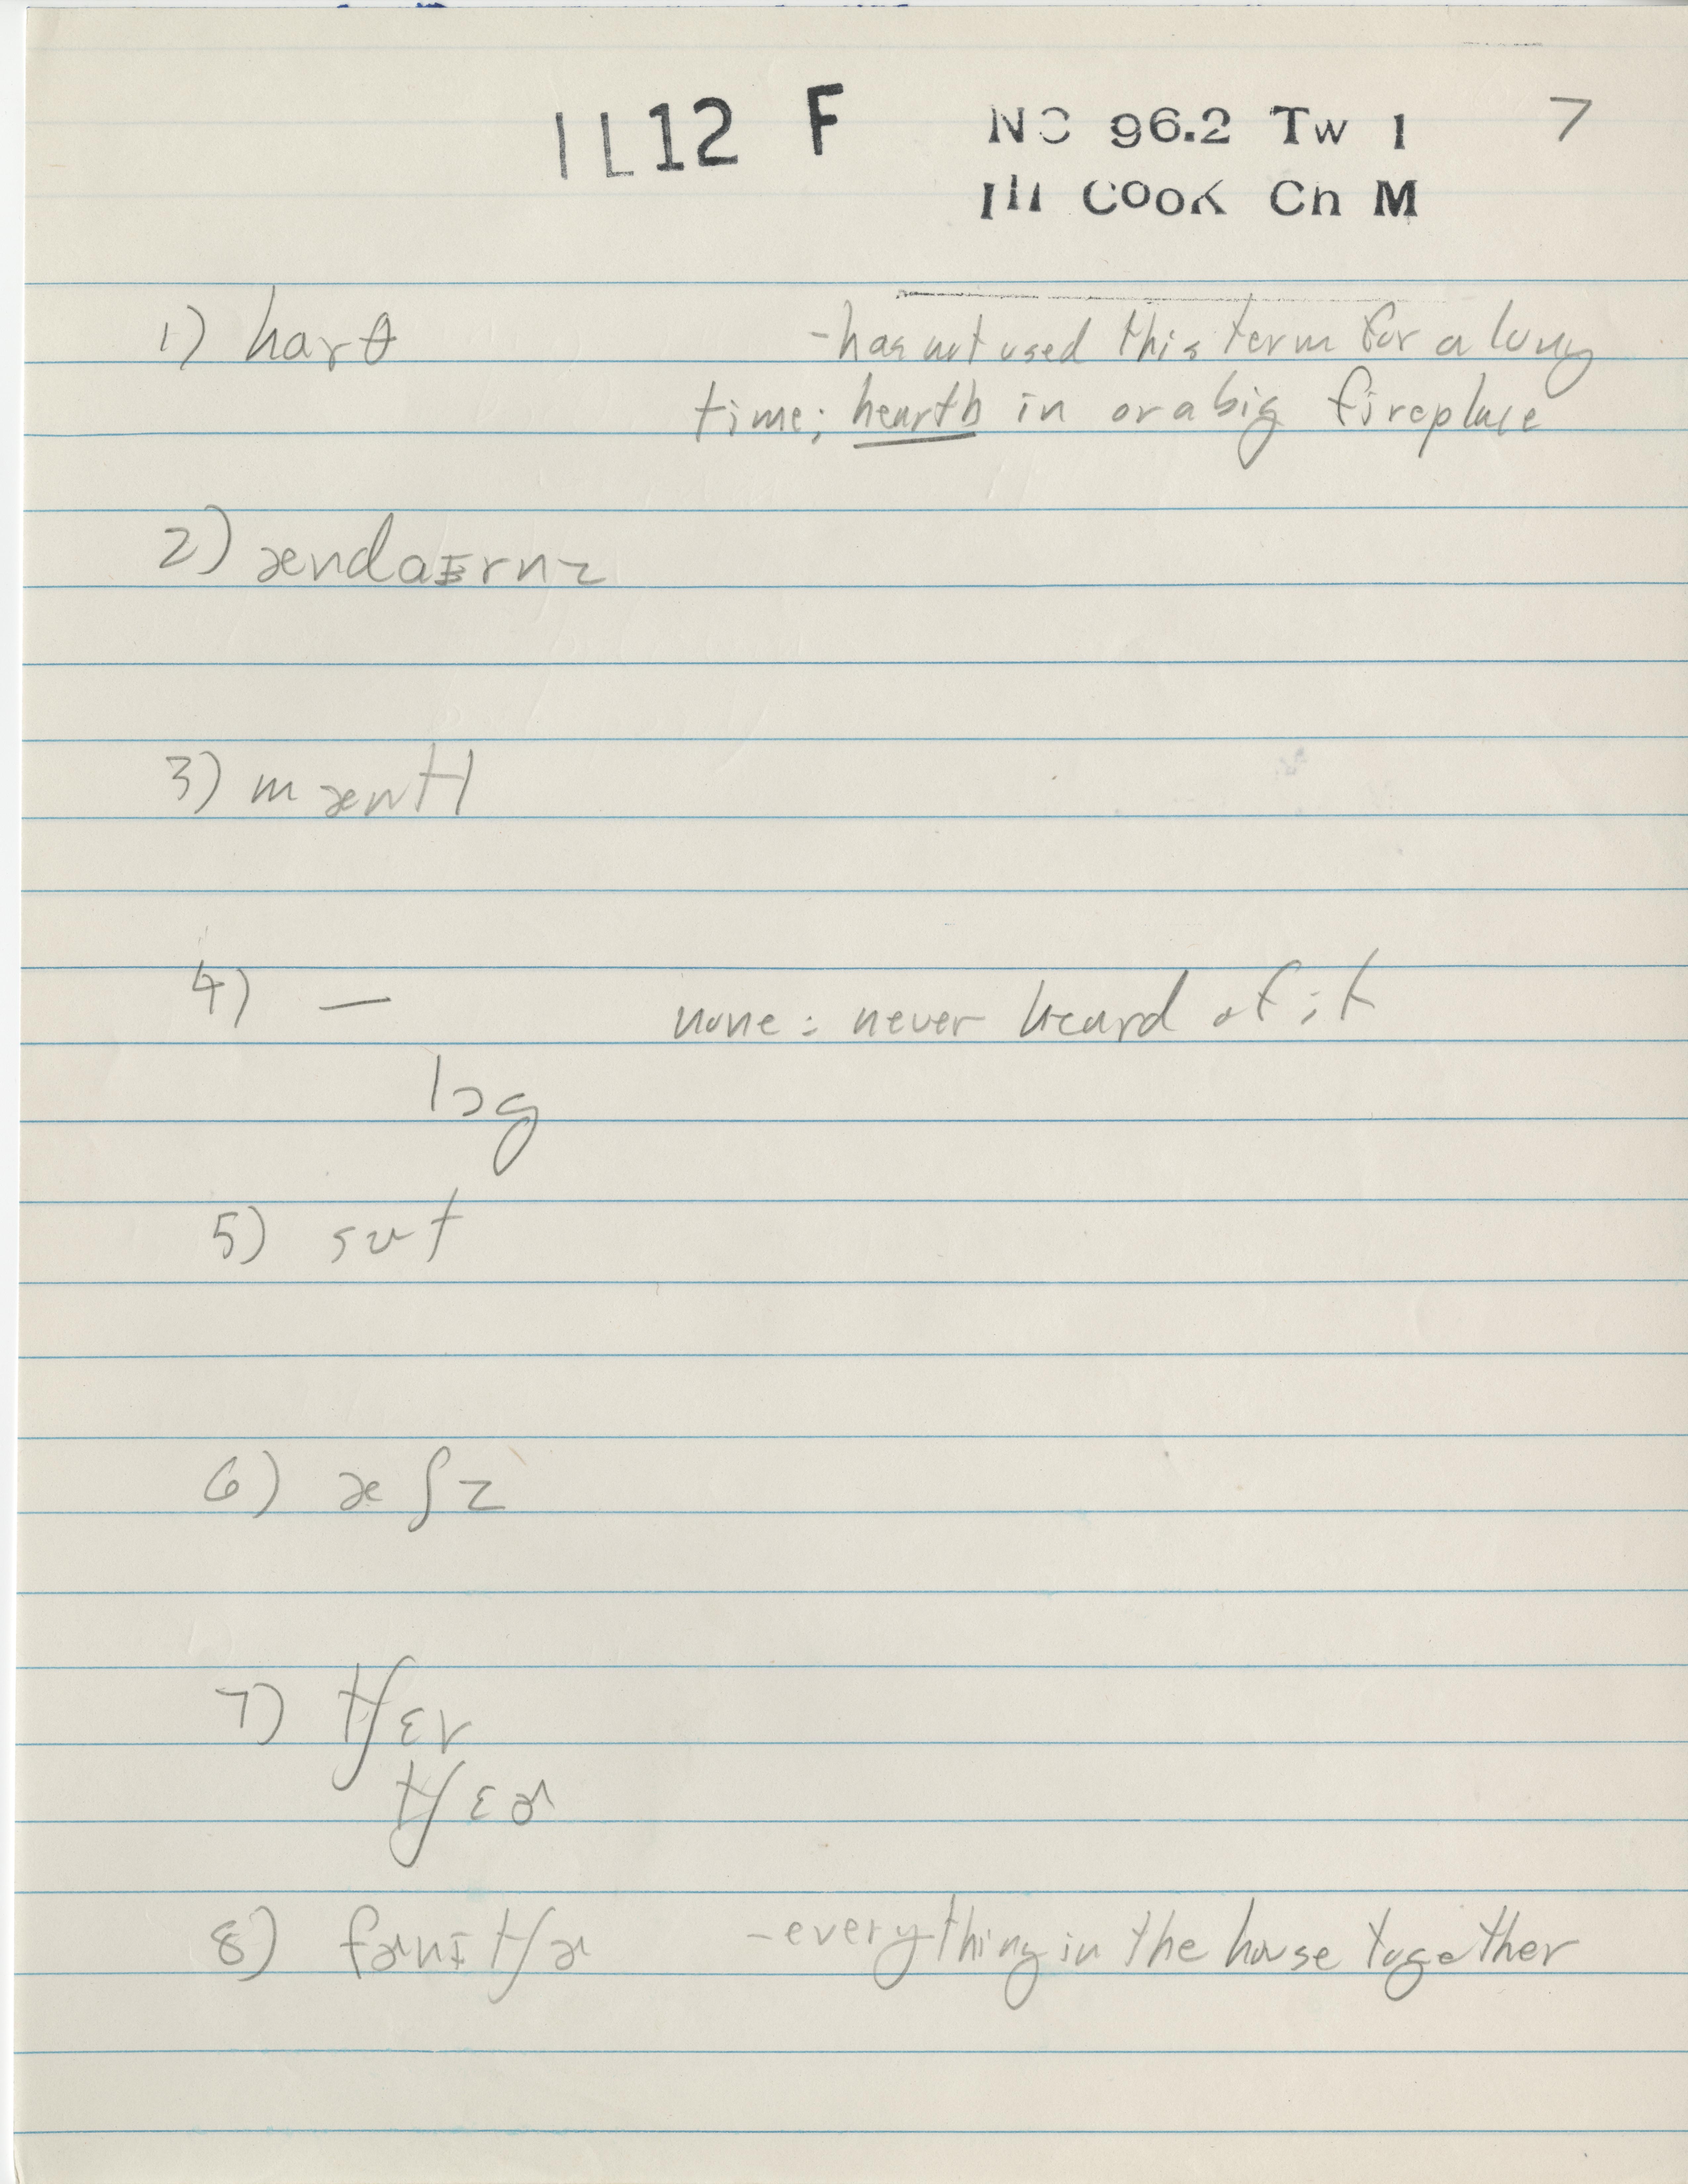 IL12 F NC 96.2 Tw 1 7
Ill Cook Ch M
1) harθ -has not used this term for a long
time; hearth in or a big fireplace
2) ændaɪrnz
3) mæntl
4) — none: never heard of it
lɔg
5) sʊt
6) æʃz
7) tʃɛr
tʃɛɚ
8) fɚnɪtʃɚ -everything in the house together